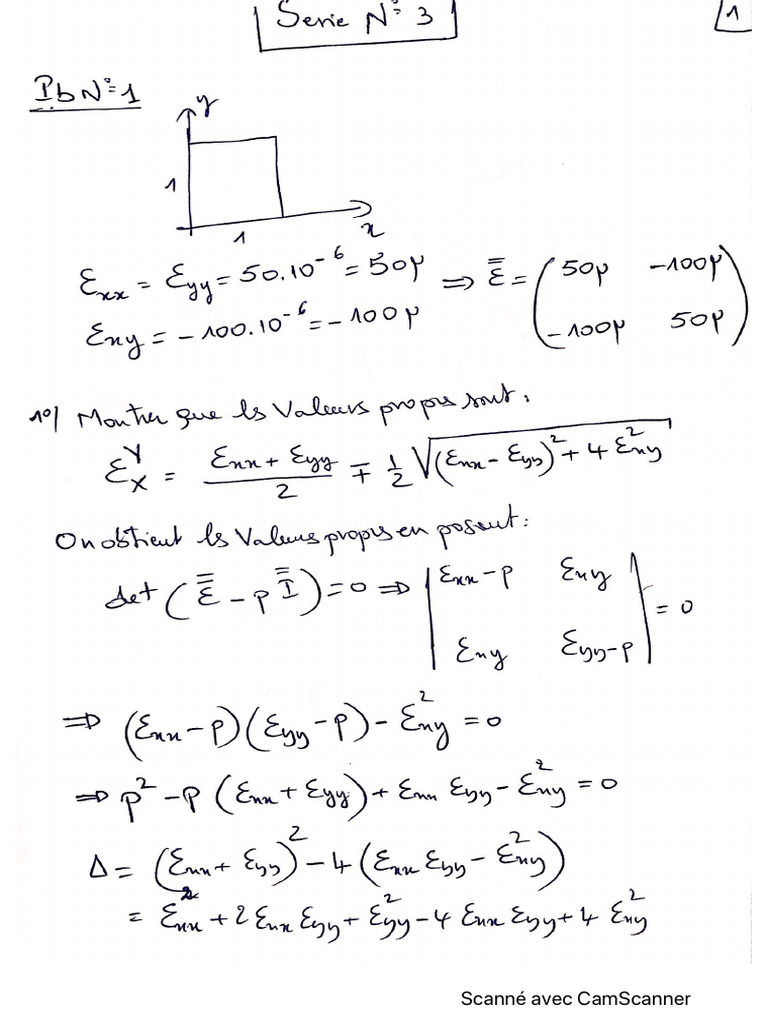 Serie N° 3
1
Pb N° 1
y
1
1
x
εxx = εyy = 50.10⁻⁶ = 50μ ⇒ ε̿ = (50μ -100μ
εxy = -100.10⁻⁶ = -100μ -100μ 50μ)
1°/ Montrer que les Valeurs propres sont :
ε_X^Y = (εxx + εyy)/2 ∓ 1/2 √((εxx - εyy)² + 4 ε²xy)
On obtient les Valeurs propres en posant :
det (ε̿ - p I̿) = 0 ⇒ |εxx - p εxy
εxy εyy - p| = 0
⇒ (εxx - p)(εyy - p) - ε²xy = 0
⇒ p² - p (εxx + εyy) + εxx εyy - ε²xy = 0
Δ = (εxx + εyy)² - 4 (εxx εyy - ε²xy)
= ε²xx + 2 εxx εyy + ε²yy - 4 εxx εyy + 4 ε²xy
Scanné avec CamScanner